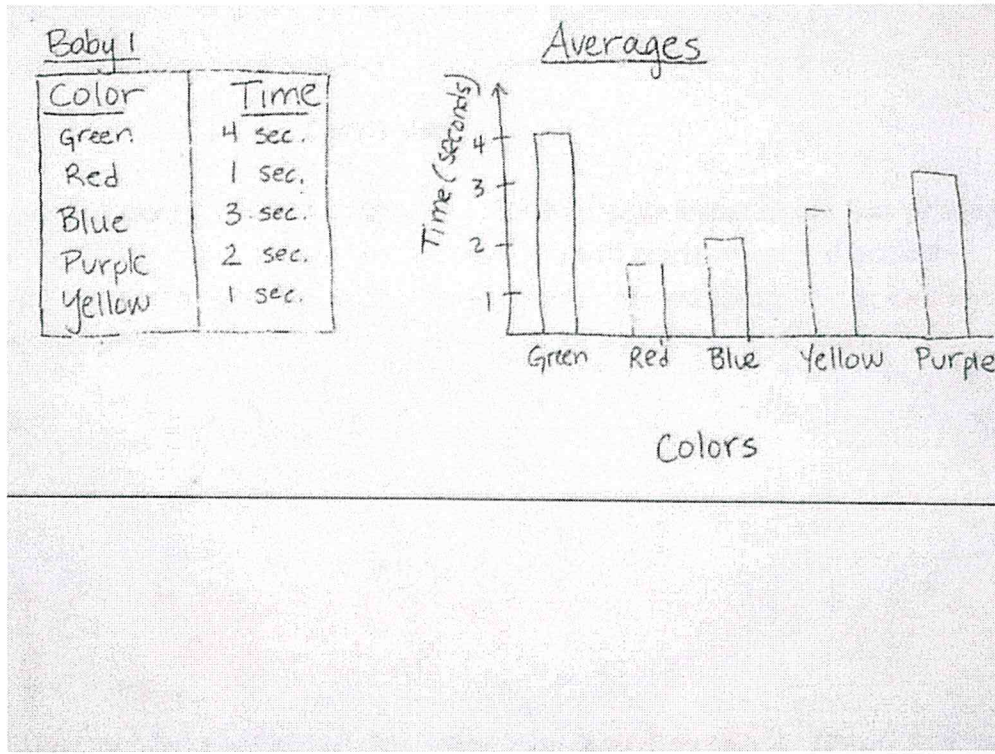 Baby 1
Color Time
Green 4 sec.
Red 1 sec.
Blue 3 sec.
Purple 2 sec.
Yellow 1 sec.
Averages
Time (seconds)
4
3
2
1
Green Red Blue Yellow Purple
Colors